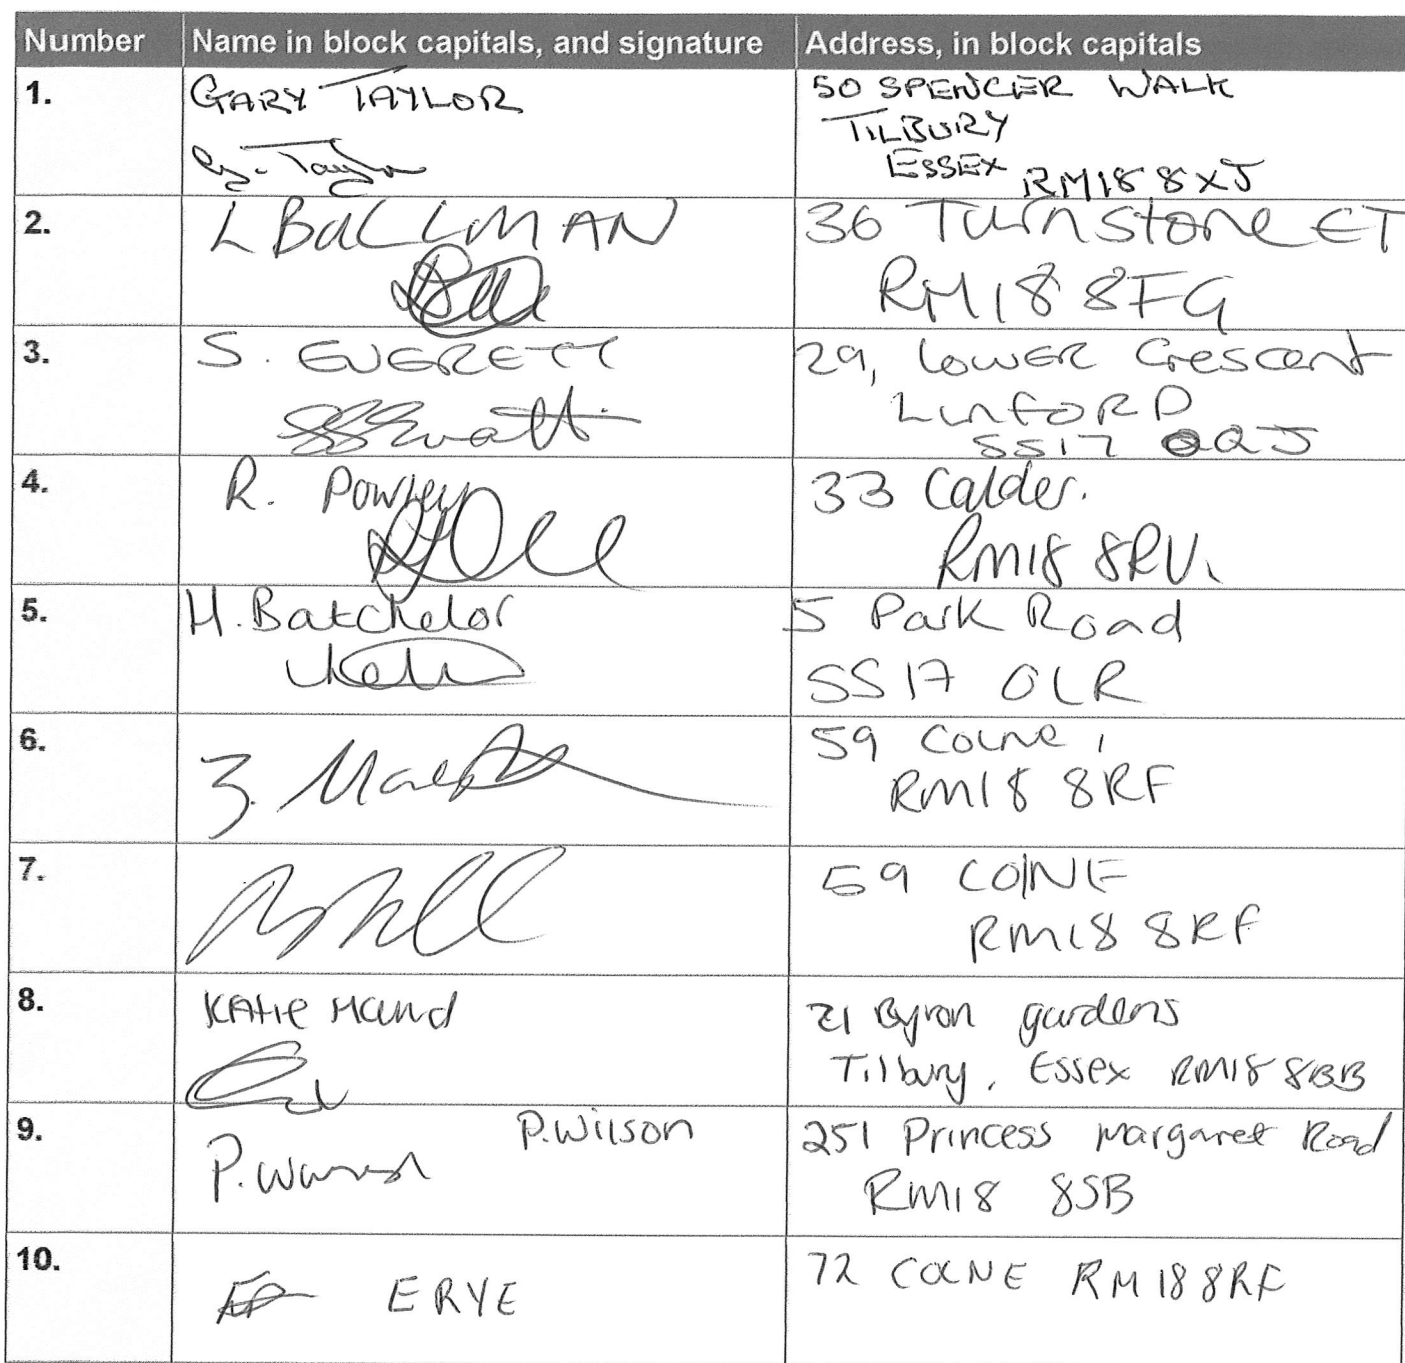 Number Name in block capitals, and signature Address, in block capitals
1. GARY TAYLOR 50 SPENCER WALK
TILBURY
G. Taylor ESSEX RM18 8XJ
2. L BULLMAN 36 Turnstone CT
RM18 8FG
3. S. EVERETT 29, LOWER Crescent
LINFORD
SS17 0QJ
4. R. Powley 33 Calder.
RM18 8RV.
5. H. Batchelor 5 Park Road
SS17 0LR
6. 59 Colne,
RM18 8RF
7. 59 COLNE
RM18 8RF
8. KATIE 21 Byron gardens
Tilbury, Essex RM18 8BB
9. P.Wilson 251 Princess Margaret Road
RM18 8SB
10. E RYE 72 COLNE RM18 8RF